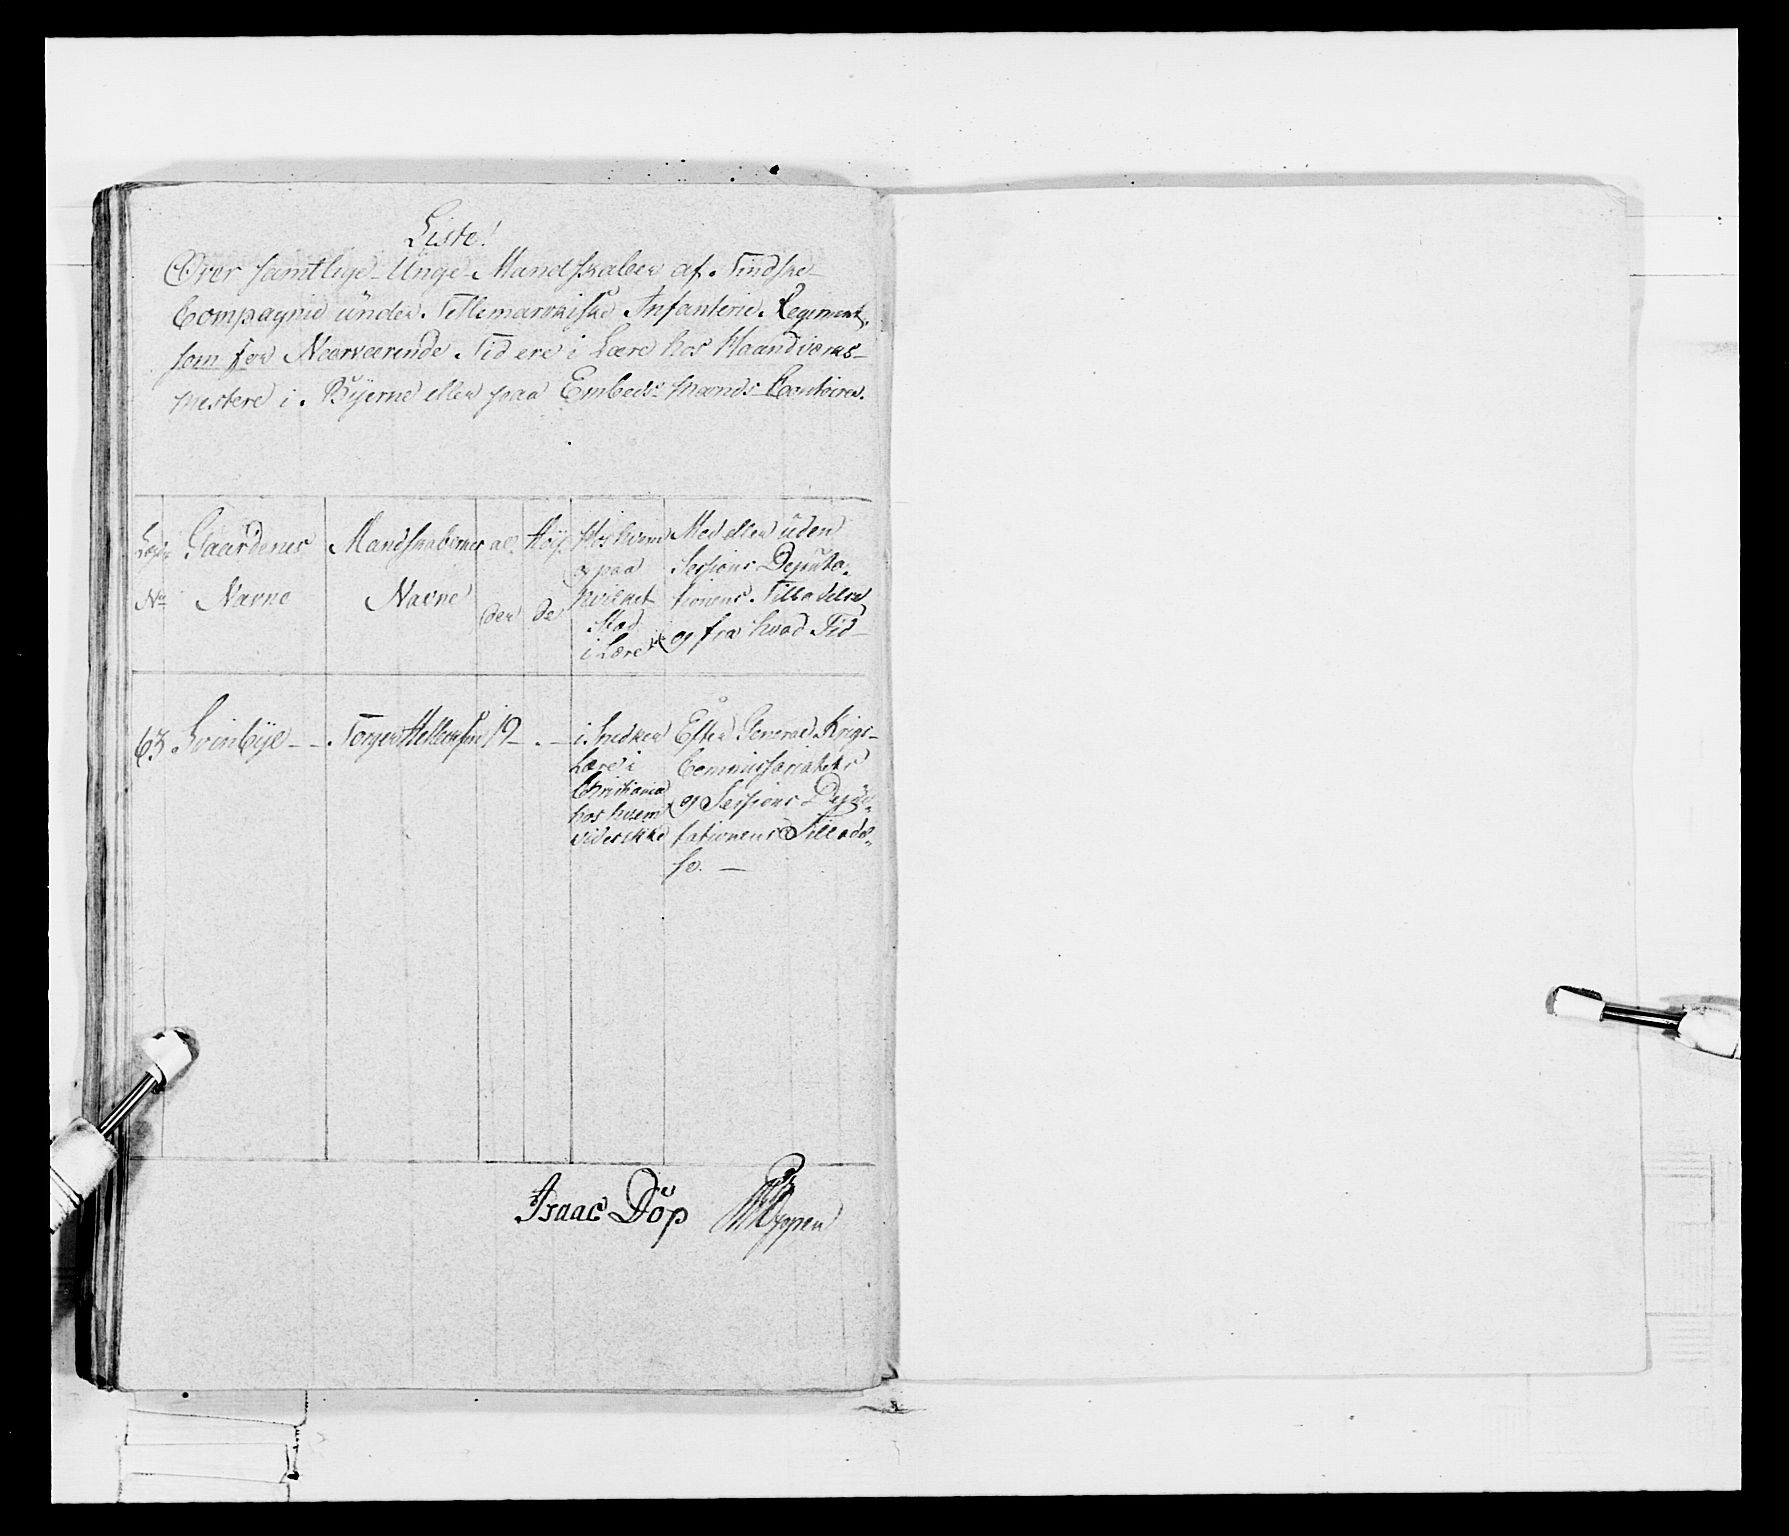 Liste!
Over samtlige Unge Mandskaber af Tindske
Compagnie under Tellemarkiske Infanterie Regiment,
som for Nærværende Tid ere i Lære hos Haandværks-
mestere i Byerne eller paa Embeds-Mænds Contoirer.
Lægs No Gaardenes Navne
Mandskabernes Navne
al der
Høy de
Hos hvem og paa hvilket Stæd i Lære
Med eller uden Sessions Deputationens Tilladelse og fra hvad Tid
63 Svinbye - - Torger Hellerssen 19 - . -
i Snedker
Lære i
Christiania
hos hvem
vides ikke
Efter General Krigs-
Commissariatets
og Sessions Depu-
tationens Tillade-
se. -
Isaac Döp